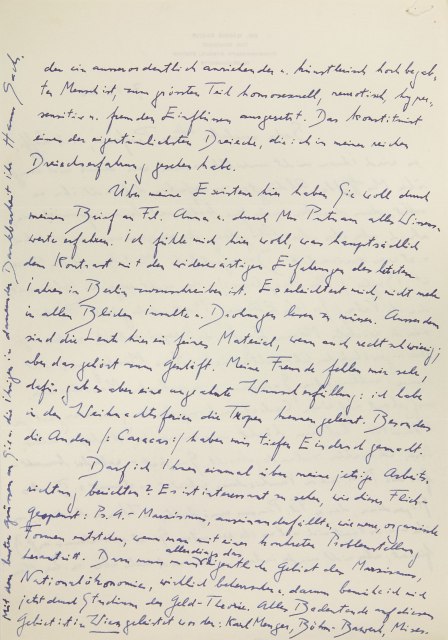 der ein ausserordentlich anziehender u. künstlerisch hoch begab-
ter Mensch ist, zum grössten Teil homosexuell, neurotisch, hyper-
sensitiv u. fremden Einflüssen ausgesetzt. Das konstituiert
eines der eigentümlichsten Dreiecke, die ich in meiner reichen
Dreieckserfahrung gesehen habe.
Über meine Existenz hier haben Sie wohl durch
meinen Brief an Frl. Anna u. durch Mrs Putnam alles Wissens-
werte erfahren. Ich fühle mich hier wohl, was hauptsächlich
dem Kontrast mit den widerwärtigen Erfahrungen der letzten
Jahre in Berlin zuzuschreiben ist. Es erleichtert mich, nicht mehr
in allen Blicken Insulte u. Drohungen lesen zu müssen. Ausserdem
sind die Leute hier ein feines Material, wenn auch recht schwierig;
aber das gehört zum Geschäft. Meine Freunde fehlen mir sehr,
dafür gab es aber eine ungeahnte Wunscherfüllung: ich habe
in den Weihnachtsferien die Tropen kennen gelernt. Besonders
die Anden /: Caracas :/ haben mir tiefen Eindruck gemacht.
Darf ich Ihnen einmal über meine jetzige Arbeits-
richtung berichten? Es ist interessant zu sehen, wie dieses
gespenst: Ps. A.- Marxismus, auseinanderfällt u. wie neue, organische
Formen entstehen, wenn man mit einer konkreten Problemstellung
herantritt. Dazu muss man allerdings das eigentliche Gebiet des Marxismus,
Nationalökonomie, wirklich beherrschen u. darum bemühe ich mich
jetzt durch Studium der Geld-Theorie. Alles Bedeutende auf diesem
Gebiet ist in Wien geleistet worden: Karl Menger, Böhm-Bawerk, Mises
Mit den besten Grüssen an Sie u. die Ihrigen in dauernder Dankbarkeit Ihr Hanns Sachs.